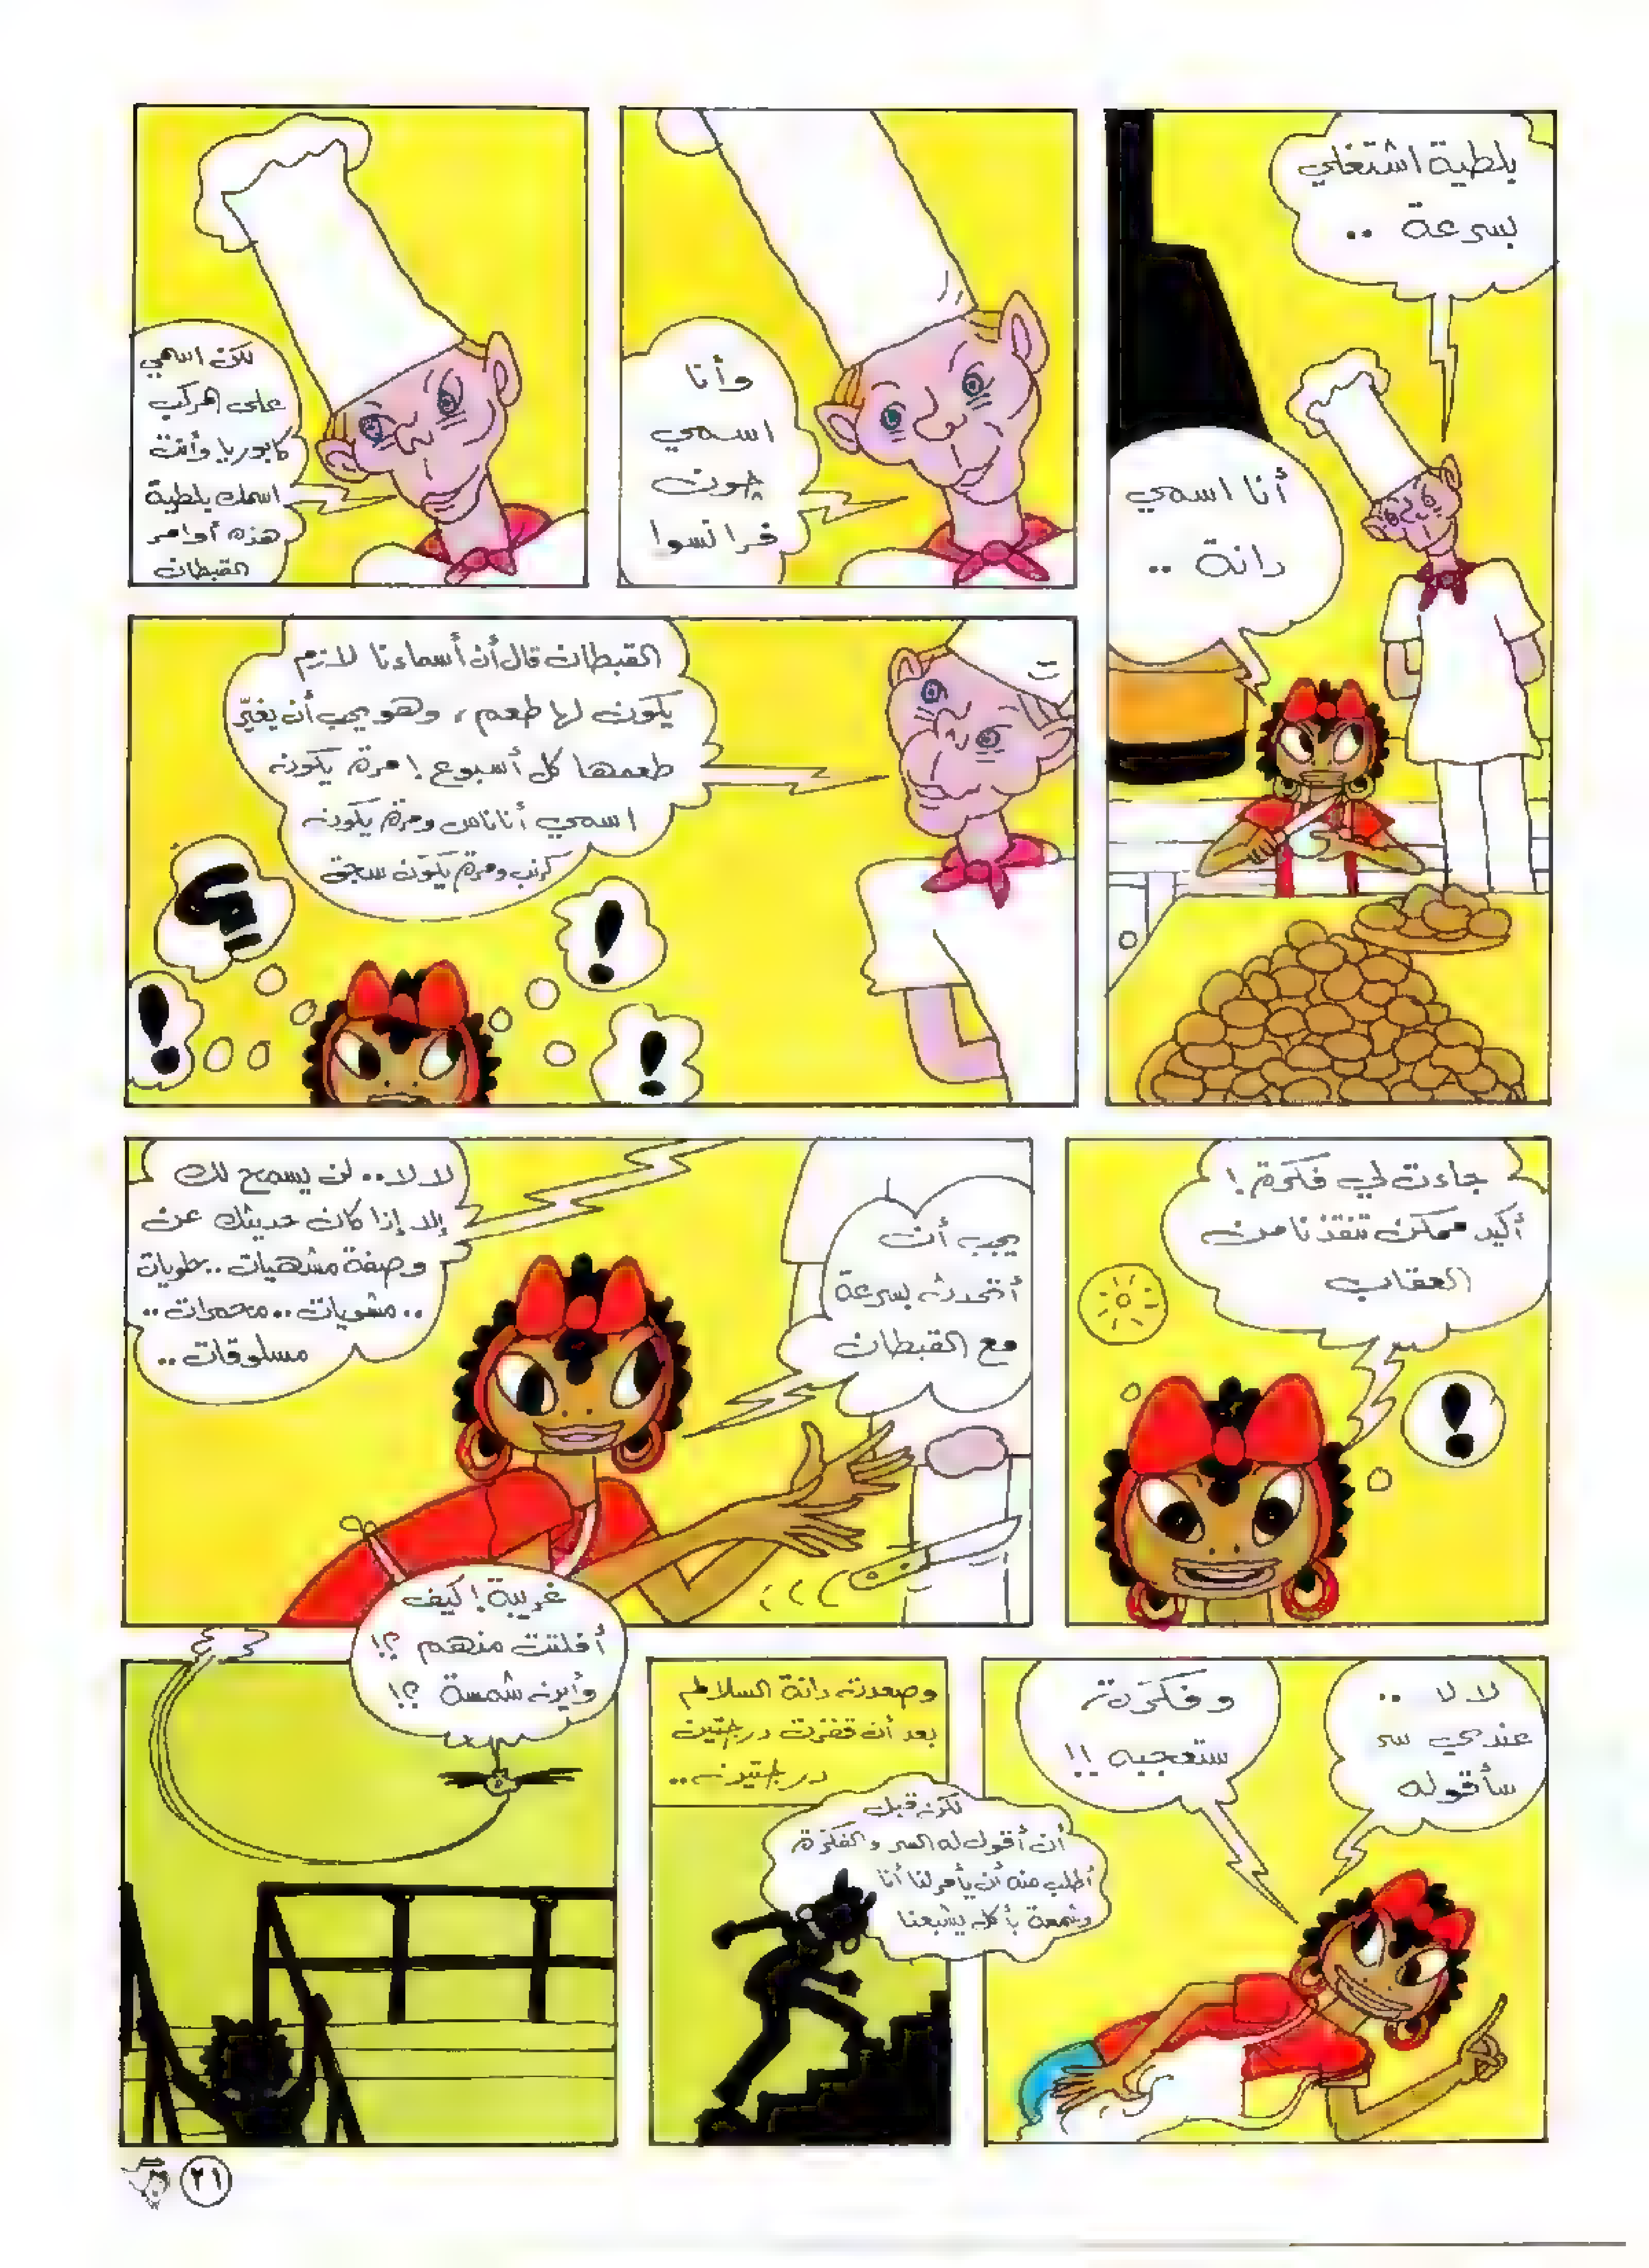 بلطية اشتغلي
بسرعة ..
أنا اسمي
دانة ..
وأنا
اسمي
چون
فرانسوا
لكن اسمي
على المركب
كابوريا وأنت
اسمك بلطية
هذه أوامر
القبطان
القبطان قال أن أسماءنا لازم
يكون لها طعم، وهو يجب أن يغيّر
طعمها كل أسبوع! مرة يكون
اسمي أناناس ومرة يكون
كرنب ومرة يكون سجق
!
!
!
جاءت لي فكرة!
أكيد ممكن تنقذنا من
العقاب
!
يجب أن
أتحدث بسرعة
مع القبطان
لا لا.. لن يسمح لك
إلا إذا كان حديثك عن
وصفة مشهيات.. حلويات
.. مشويات.. محمرات..
مسلوقات..
لا لا ..
عندي سر
سأقوله
وفكرة
ستعجبه !!
وصعدت دانة السلالم
بعد أن قفزت درجتين
درجتين..
لكن قبل
أن أقول له السر والفكرة
أطلب منه أن يأمر لنا أنا
وشمسة بأكله يشبعنا
غريبة! كيف
أفلتت منهم ؟!
وأين شمسة ؟!
٢١